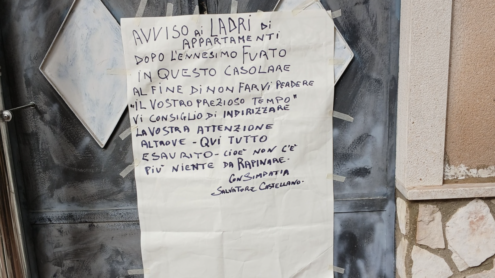 AVVISO ai LADRI di
APPARTAMENTI
DOPO L'ENNESIMO FURTO
IN QUESTO CASOLARE
AL FINE DI NON FARVI PERDERE
"IL VOSTRO PREZIOSO TEMPO"
VI CONSIGLIO DI INDIRIZZARE
LA VOSTRA ATTENZIONE
ALTROVE - QUI TUTTO
ESAURITO - CIOÈ NON C'È
PIÙ NIENTE DA RAPINARE.
CON SIMPATIA
SALVATORE CASTELLANO.